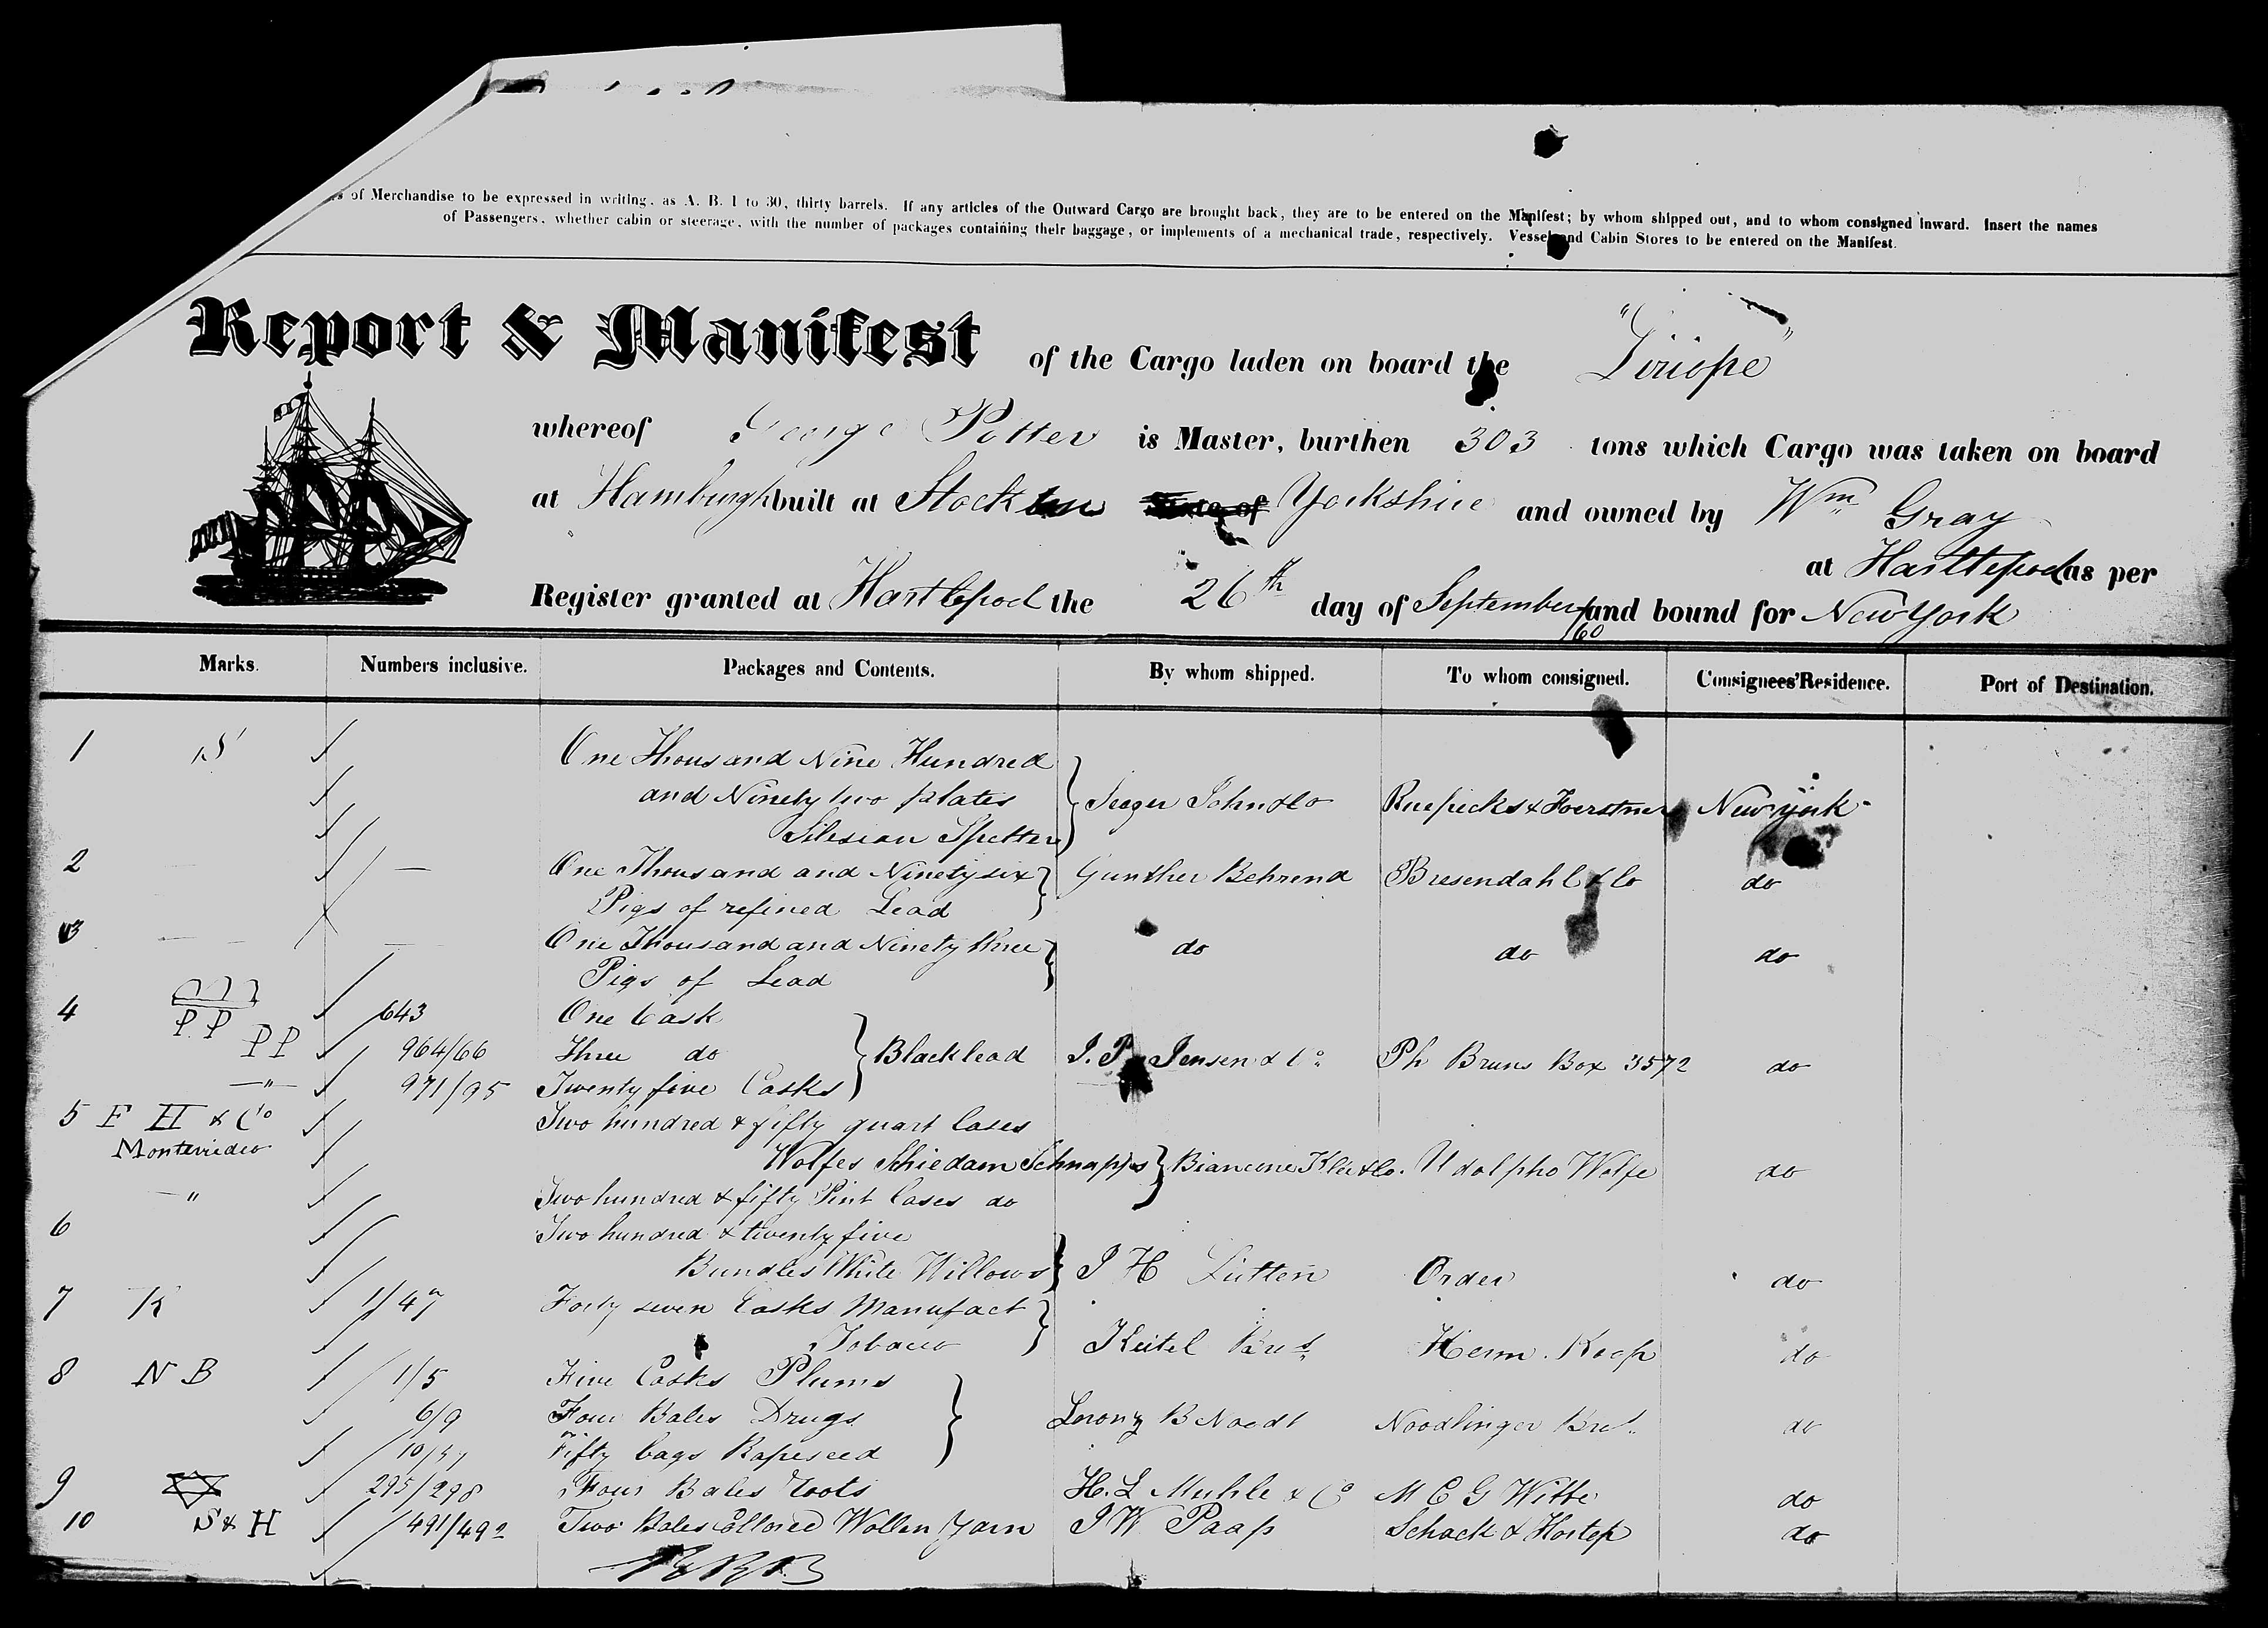 of Merchandise to be expressed in writing, as A. B. 1 to 30, thirty barrels. If any articles of the Outward Cargo are brought back, they are to be entered on the Manifest; by whom shipped out, and to whom consigned inward. Insert the names
of Passengers, whether cabin or steerage, with the number of packages containing their baggage, or implements of a mechanical trade, respectively. Vessel and Cabin Stores to be entered on the Manifest.
Report & Manifest of the Cargo laden on board the "Liriope"
whereof George Potter is Master, burthen 303 tons which Cargo was taken on board
at Hamburgh built at Stockton Yorkshire and owned by Wm Gray
at Hartlepool as per
Register granted at Hartlepool the 26th day of September /60 and bound for New York
Marks. Numbers inclusive. Packages and Contents. By whom shipped. To whom consigned. Consignees' Residence. Port of Destination.
1 S One Thousand Nine Hundred
and Ninety two plates Johns & Co New york
Silesian Spelter
2 — One Thousand and Ninety six Gunther Behrend Bresendahl & Co do
Pigs of refined Lead
3 — — One Thousand and Ninety three do do do
Pigs of Lead
4 PP 643 One Cask
PP 964/66 Three do Blacklead J. P. Jensen & Co Ph Bruns Box 3572 do
—"— 971/95 Twenty five Casks
5 F H & Co Two hundred & fifty quart Cases
Montevideo Wolfes Schiedam Schnapps Udolpho Wolfe do
—" Two hundred & fifty Pint Cases do
6 Two hundred & twenty five
Bundles White Willows J H Lütten Order do
7 K 1/47 Forty seven Casks Manufact
Tobacco Keitel Brs Herm. Koop do
8 N B 1/5 Five Casks Plums
6/9 Four Bales Drugs Lorenz B Noodt Noodlinger Bro. do
Fifty bags Rapeseed
9 295/298 Four Bales Roots H. L Muhle & Co M C G Witte do
10 S & H 491/492 Two Bales Collored Wollen Yarn J W Paap Schack & Hotop do